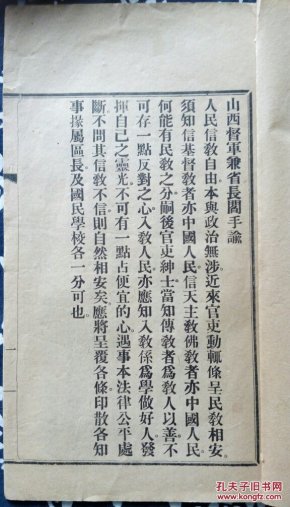 山西督軍兼省長閻手諭
人民信敎自由本與政治無涉近來官吏動輒條呈民敎相安
須知信基督敎者亦中國人民信天主敎佛敎者亦中國人民
何能有民敎之分嗣後官吏紳士當知傳敎者爲敎人以善不
可存一點反對之心入敎人民亦應知入敎係爲學做好人發
揮自己之靈光不可有一點占便宜的心遇事本法律公平處
斷不問其信敎不信則自然相安矣應將呈覆各條印散各知
事掾屬區長及國民學校各一分可也
一
孔夫子旧书网